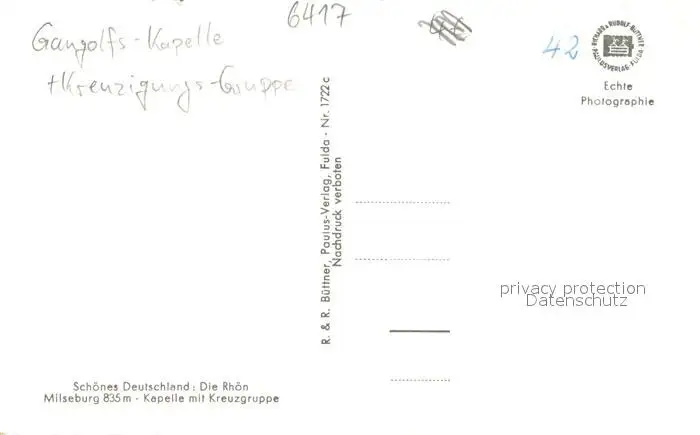 6417
Gangolfs-Kapelle
+Kreuzigungs-Gruppe
42
RICHARD & RUDOLF BÜTTNER
PAULUSVERLAG, FULDA
Echte
Photographie
R. & R. Büttner, Paulus-Verlag, Fulda · Nr. 1722c
Nachdruck verboten
privacy protection
Datenschutz
Schönes Deutschland: Die Rhön
Milseburg 835m - Kapelle mit Kreuzgruppe